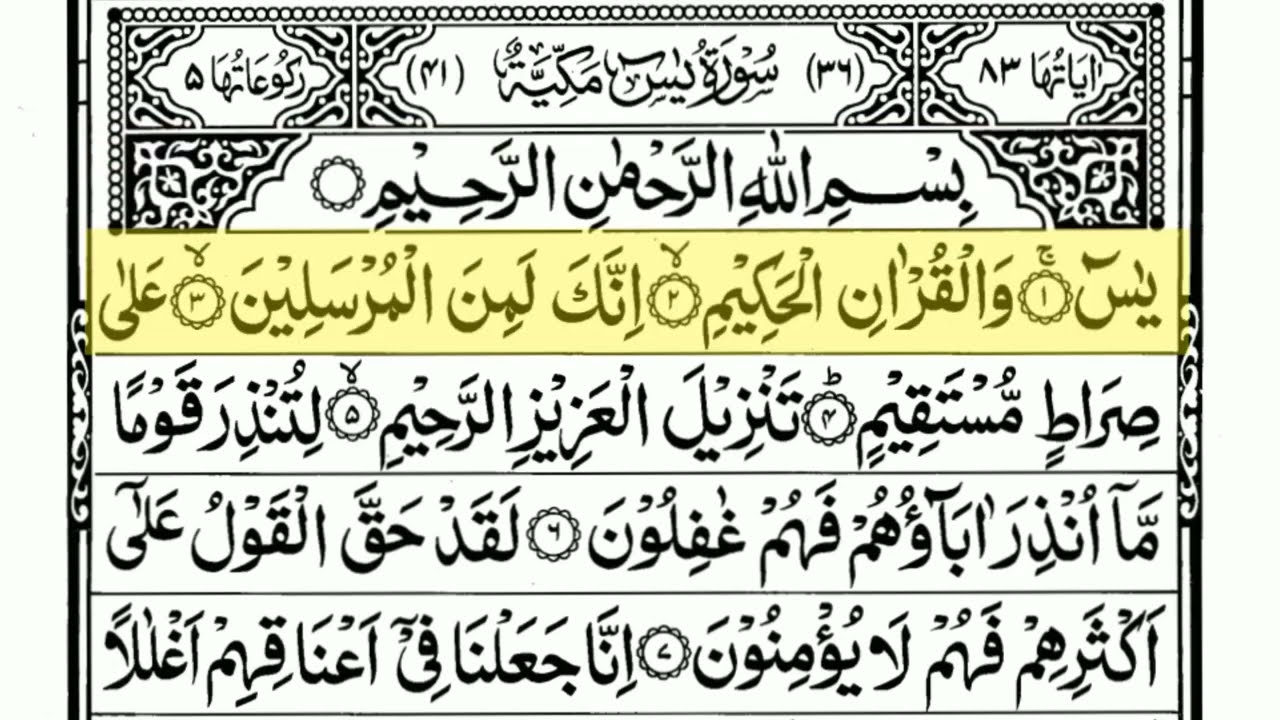 اٰيَاتُهَا ٨٣ (٣٦) سُوْرَةُ يٰسٓ مَكِّيَّةٌ (٤١) رُكُوْعَاتُهَا ٥
بِسْمِ اللّٰهِ الرَّحْمٰنِ الرَّحِيْمِ ۝
يٰسٓ ۚ﴿١﴾ وَالْقُرْاٰنِ الْحَكِيْمِ ۙ﴿٢﴾ اِنَّكَ لَمِنَ الْمُرْسَلِيْنَ ۙ﴿٣﴾ عَلٰى
صِرَاطٍ مُّسْتَقِيْمٍ ؕ﴿٤﴾ تَنْزِيْلَ الْعَزِيْزِ الرَّحِيْمِ ۙ﴿٥﴾ لِتُنْذِرَ قَوْمًا
مَّاۤ اُنْذِرَ اٰبَآؤُهُمْ فَهُمْ غٰفِلُوْنَ ﴿٦﴾ لَقَدْ حَقَّ الْقَوْلُ عَلٰۤى
اَكْثَرِهِمْ فَهُمْ لَا يُؤْمِنُوْنَ ﴿٧﴾ اِنَّا جَعَلْنَا فِيْۤ اَعْنَاقِهِمْ اَغْلٰلًا